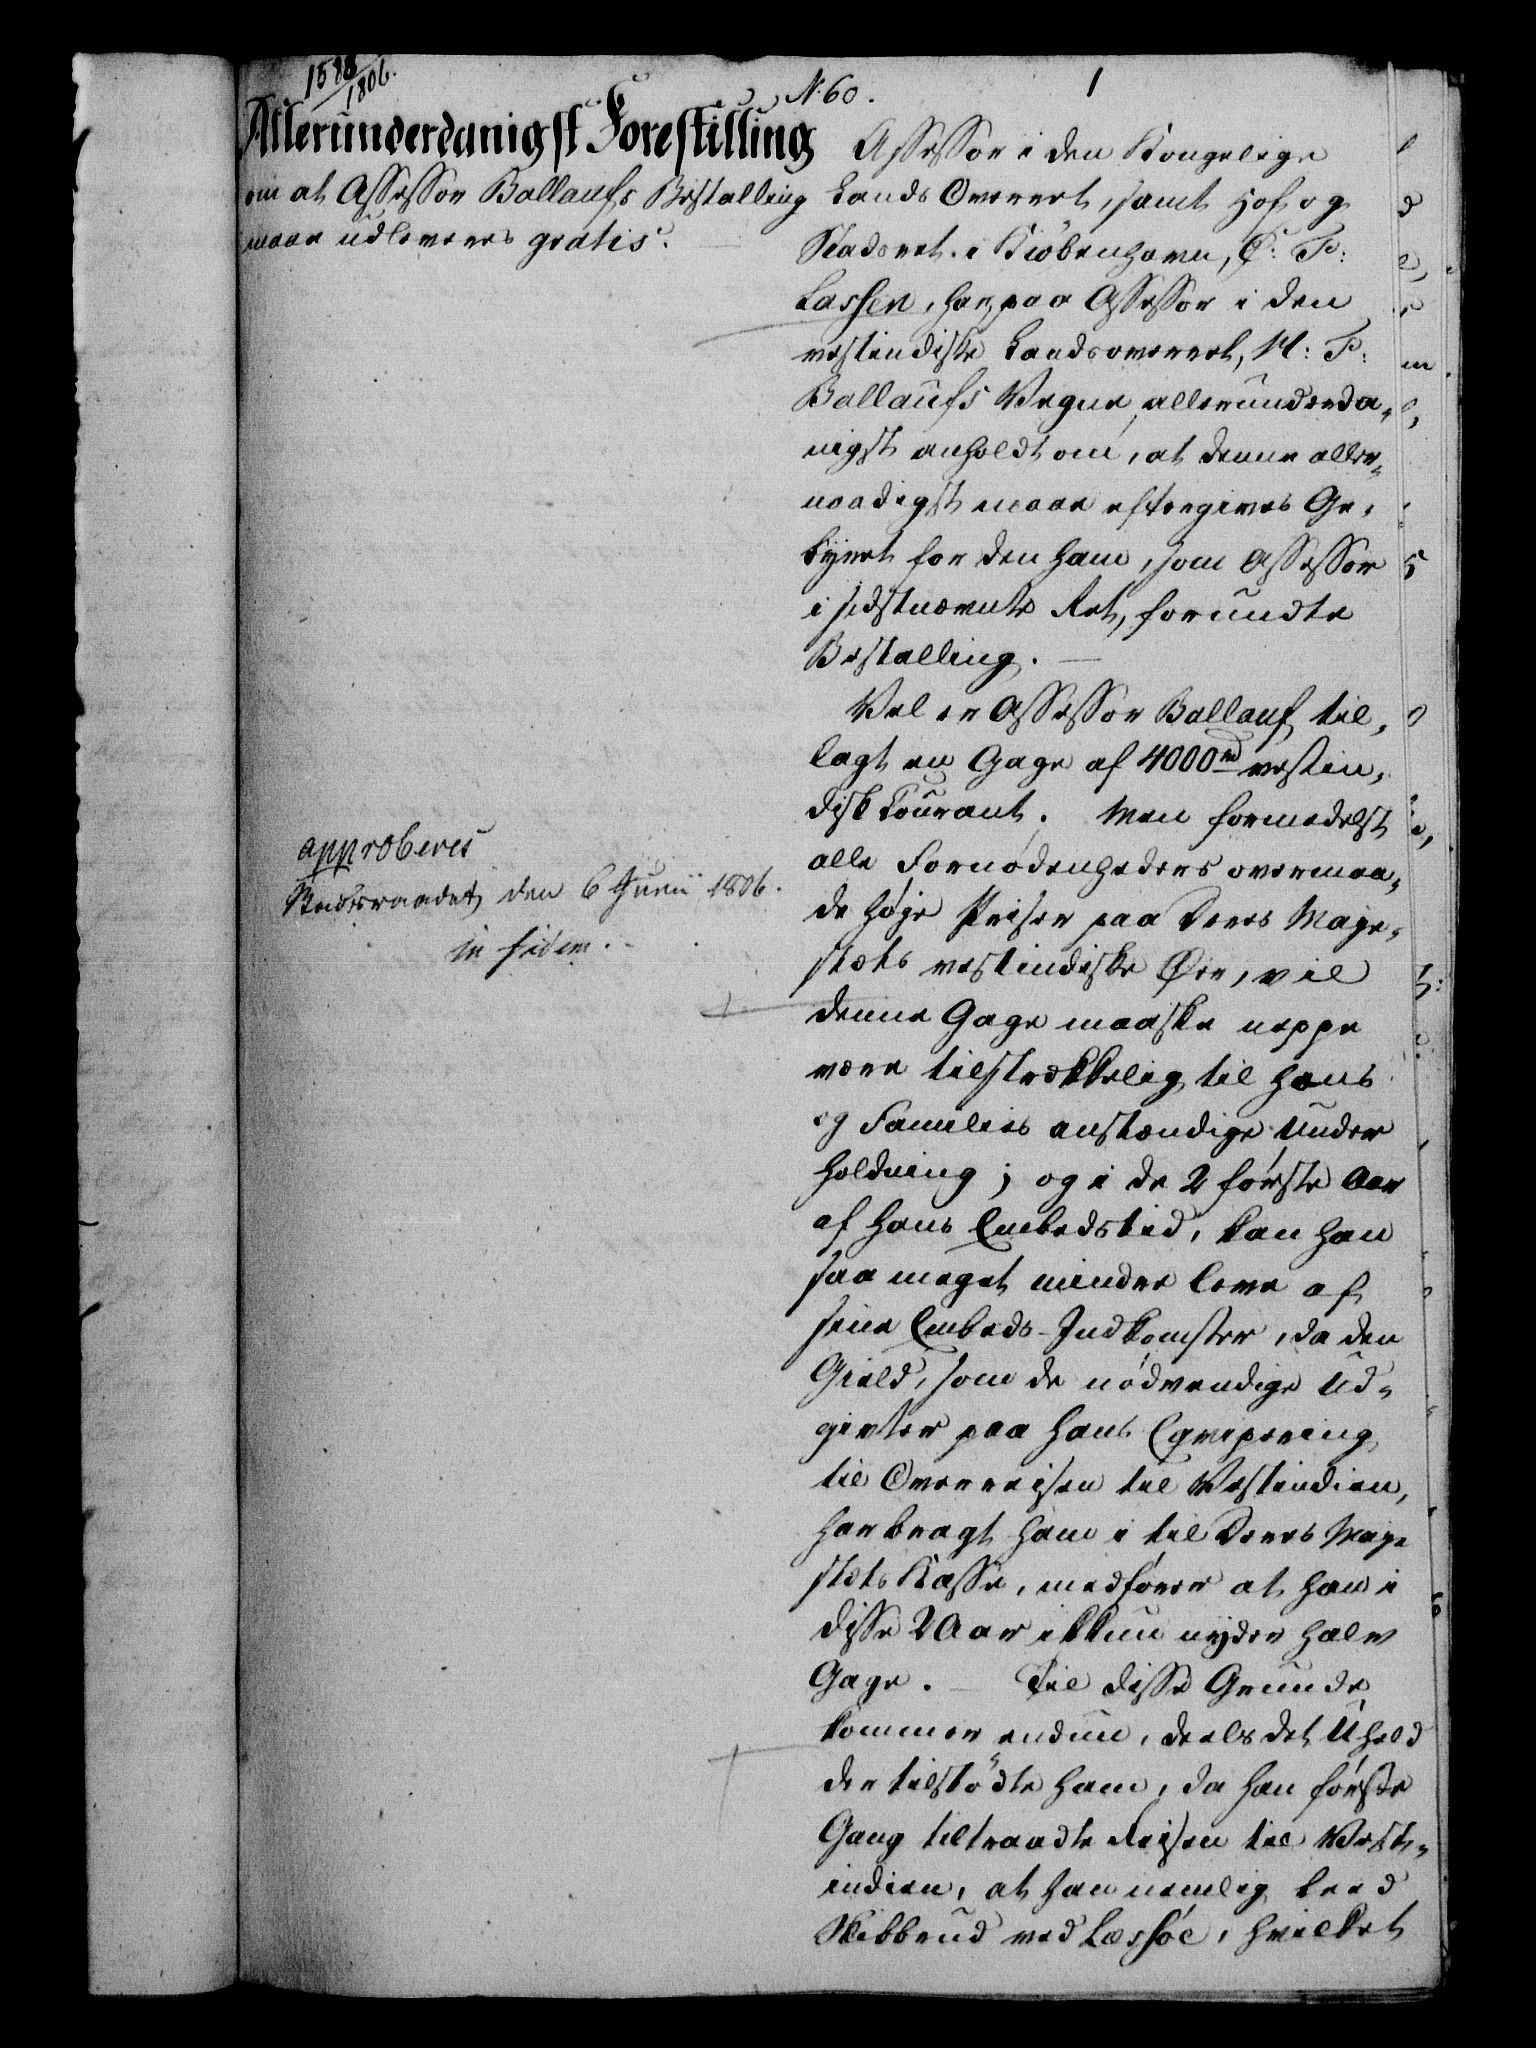 1806.
N. 60.
1
Allerunderdanigst Forestilling
om at Assessor Ballaufs Bestalling
maae udleveres gratis.
approberes
Statsraadet den 6 Junii 1806.
in fidem.
Assessor i den Kongelige
Lands Overret, samt Hof og
Stadsret i Kiöbenhavn, C: F:
Lassen, har paa Assessor i den
vestindiske Landsoverret, M: F:
Ballaufs Vegne, allerunderda-
nigst anholdt om, at denne aller-
naadigst maae eftergives Ge-
byret for den ham, som Assessor
i sidstnævnte Ret, forundte
Bestalling. —
Vel er Assessor Ballauf til-
lagt en Gage af 4000 rd vestin-
disk Courant. Men formedelst
alle Fornødenheders overmaa-
de høje Priser paa Deres Maje-
stæts vestindiske Øer, vil
denne Gage maaske neppe
være tilstrækkelig til hans
og Families anstændige Under
holdning; og i de 2 første Aar
af hans Embedstid, kan han
saa meget mindre leve af
sine Embeds-Indkomster, da den
Gield, som de nødvendige Ud-
givter paa hans Eqvipering
til Overreisen til Vestindien,
har bragt ham i til Deres Maje
stæts Kasse, medfører at han i
disse 2 Aar ikkun nyder halv
Gage. — Til disse Grunde
kommer endnu, deels det Uheld
der tilstødte ham, da han første
Gang tiltraadte Reisen til Vest-
indien, at han nemlig leed
Skibbrud ved Læssöe, hvilket